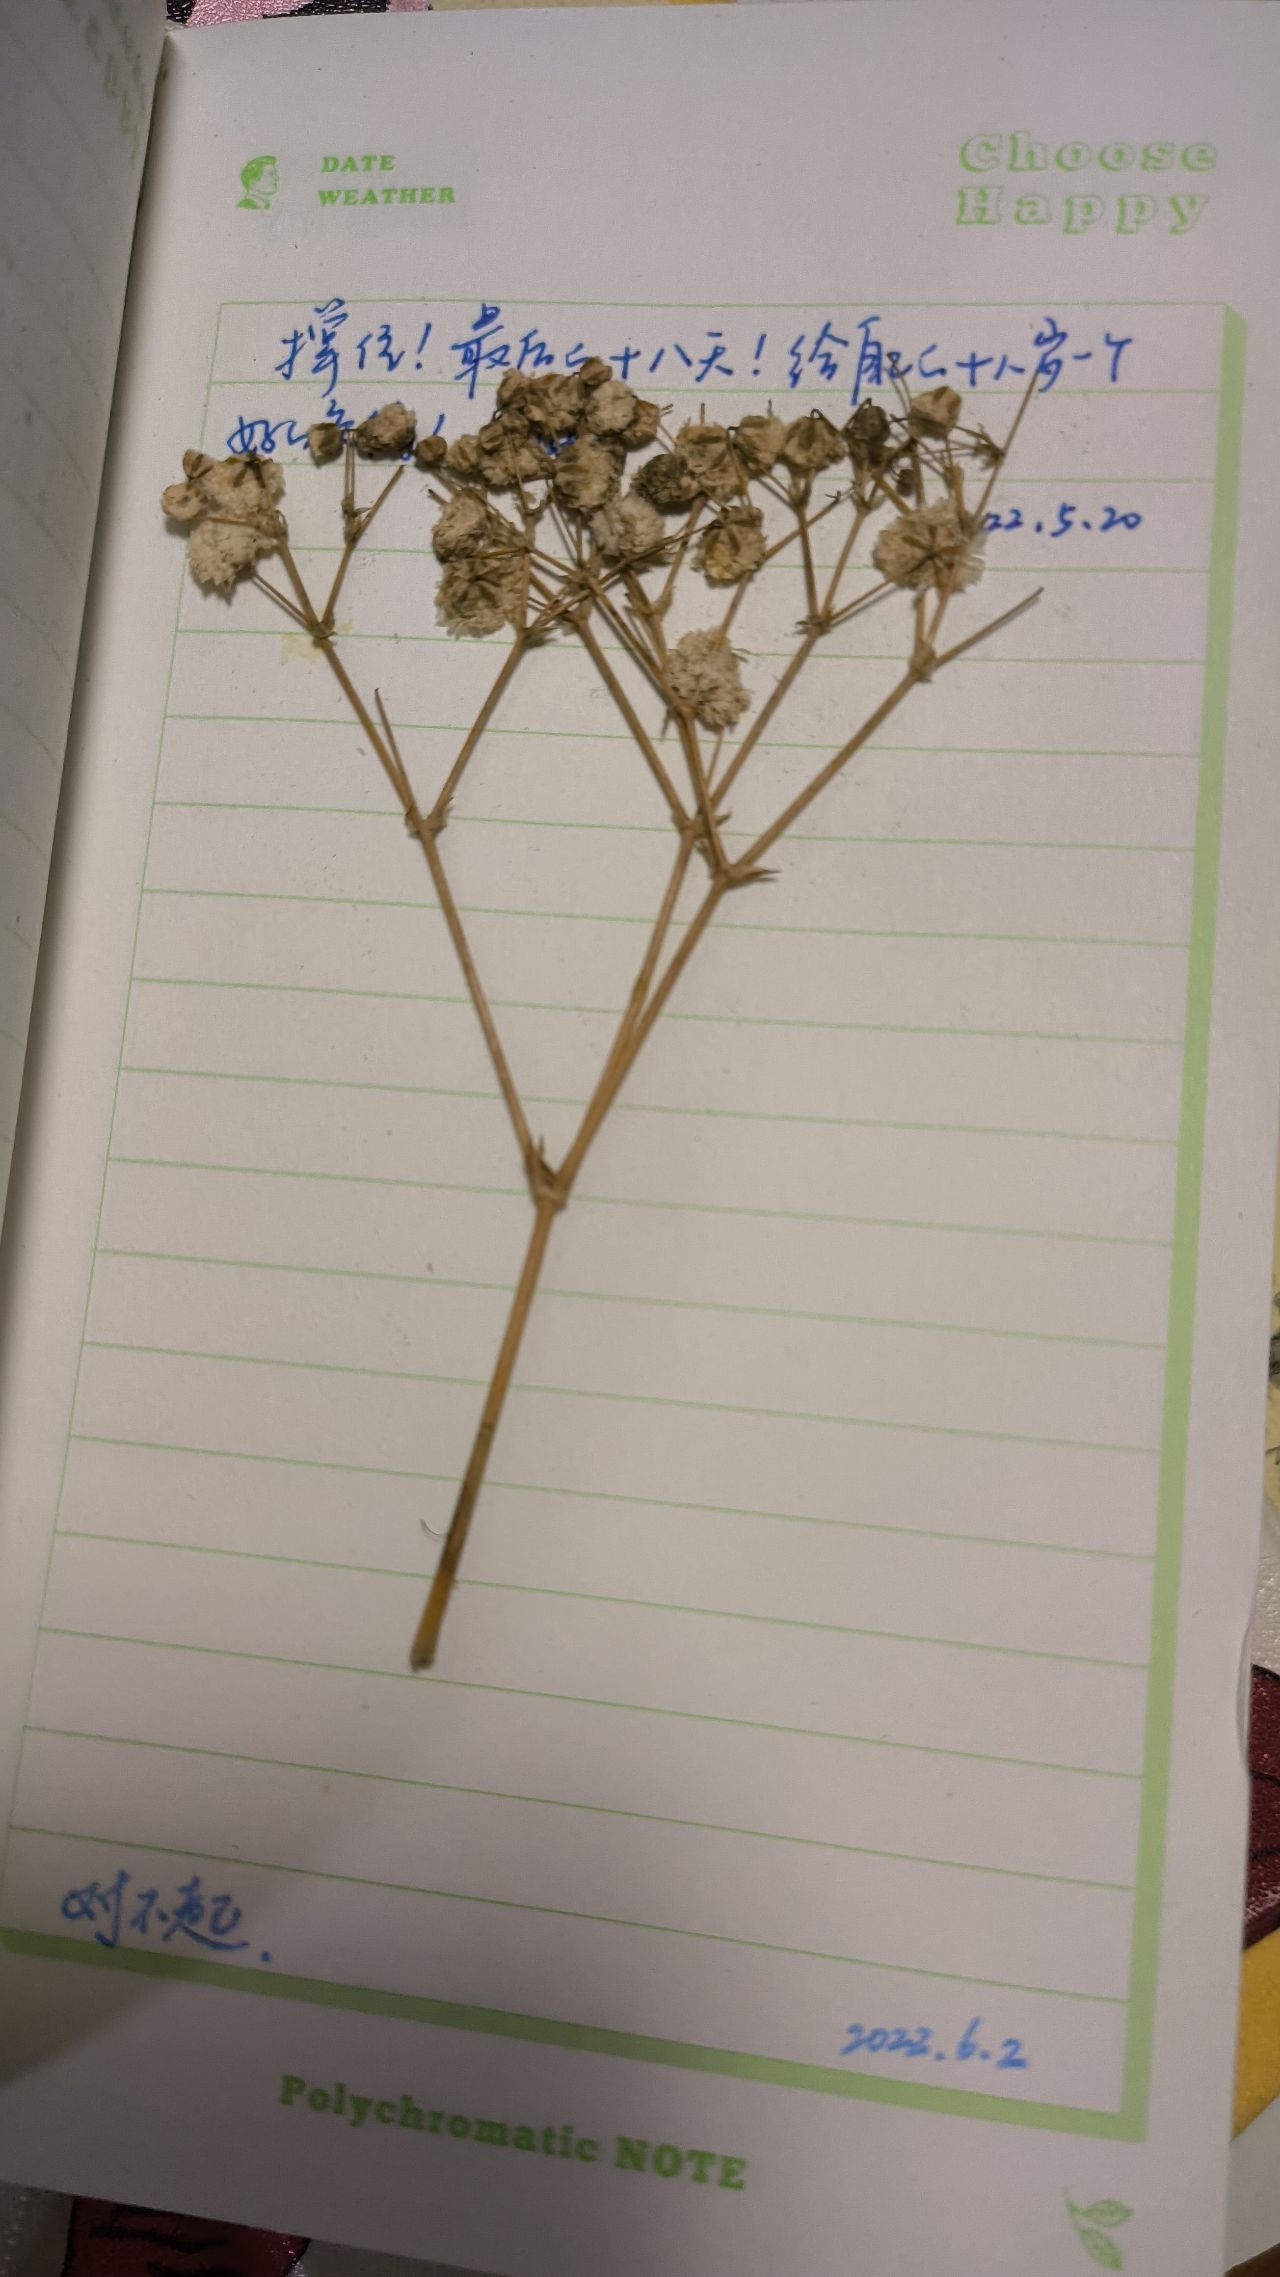 DATE
WEATHER
Choose
Happy
撑住！最后的十八天！给自己的十八岁一个
好的
22.5.20
对不起.
2022.6.2
Polychromatic NOTE